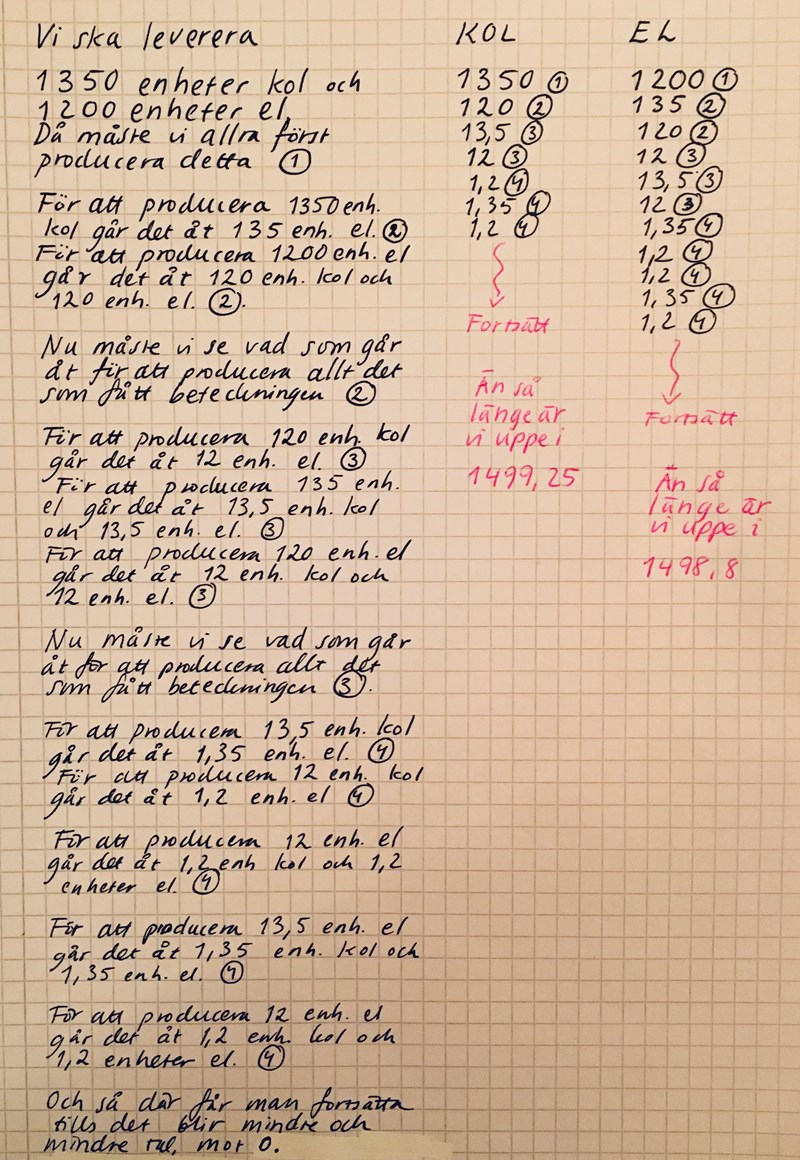 Vi ska leverera
1350 enheter kol och
1200 enheter el.
Då måste vi allra först
producera detta ①
För att producera 1350 enh.
kol går det åt 135 enh. el. ②
För att producera 1200 enh. el
går det åt 120 enh. kol och
120 enh. el. ②.
Nu måste vi se vad som går
åt för att producera allt det
som fått beteckningen ②
För att producera 120 enh. kol
går det åt 12 enh. el. ③
För att producera 135 enh.
el går det åt 13,5 enh. kol
och 13,5 enh. el. ③
För att producera 120 enh. el
går det åt 12 enh. kol och
12 enh. el. ③
Nu måste vi se vad som går
åt för att producera allt det
som fått beteckningen ③.
För att producera 13,5 enh. kol
går det åt 1,35 enh. el. ④
För att producera 12 enh. kol
går det åt 1,2 enh. el ④
För att producera 12 enh. el
går det åt 1,2 enh kol och 1,2
enheter el. ④
För att producera 13,5 enh. el
går det åt 1,35 enh. kol och
1,35 enh. el. ④
För att producera 12 enh. el
går det åt 1,2 enh. kol och
1,2 enheter el. ④
Och så där får man fortsätta
tills det blir mindre och
mindre tal, mot 0.
KOL
1350 ①
120 ②
13,5 ③
12 ③
1,2 ④
1,35 ④
1,2 ④
Fortsätt
Än så
länge är
vi uppe i
1499,25
EL
1200 ①
135 ②
120 ②
12 ③
13,5 ③
12 ③
1,35 ④
1,2 ④
1,2 ④
1,35 ④
1,2 ④
Fortsätt
Än så
länge är
vi uppe i
1498,8